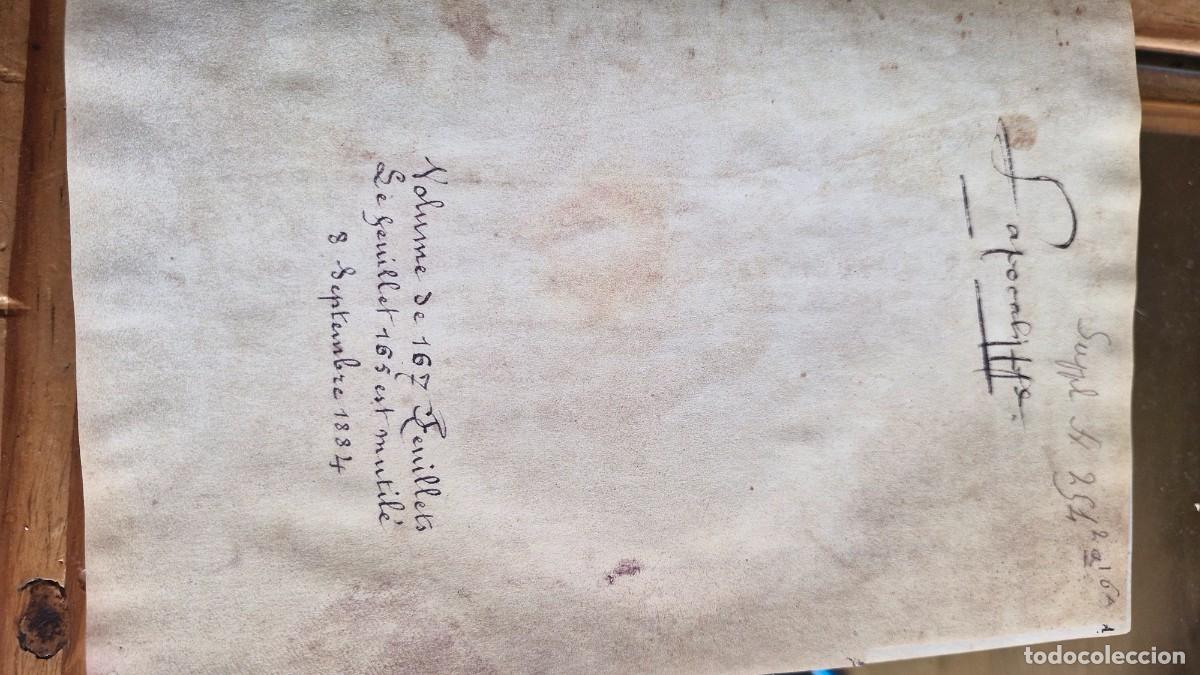 Suppl fr 254 2 a 1
L'apocalypse.
Volume de 167 Feuillets
Le feuillet 165 est mutilé
8 Septembre 1884
todocoleccion